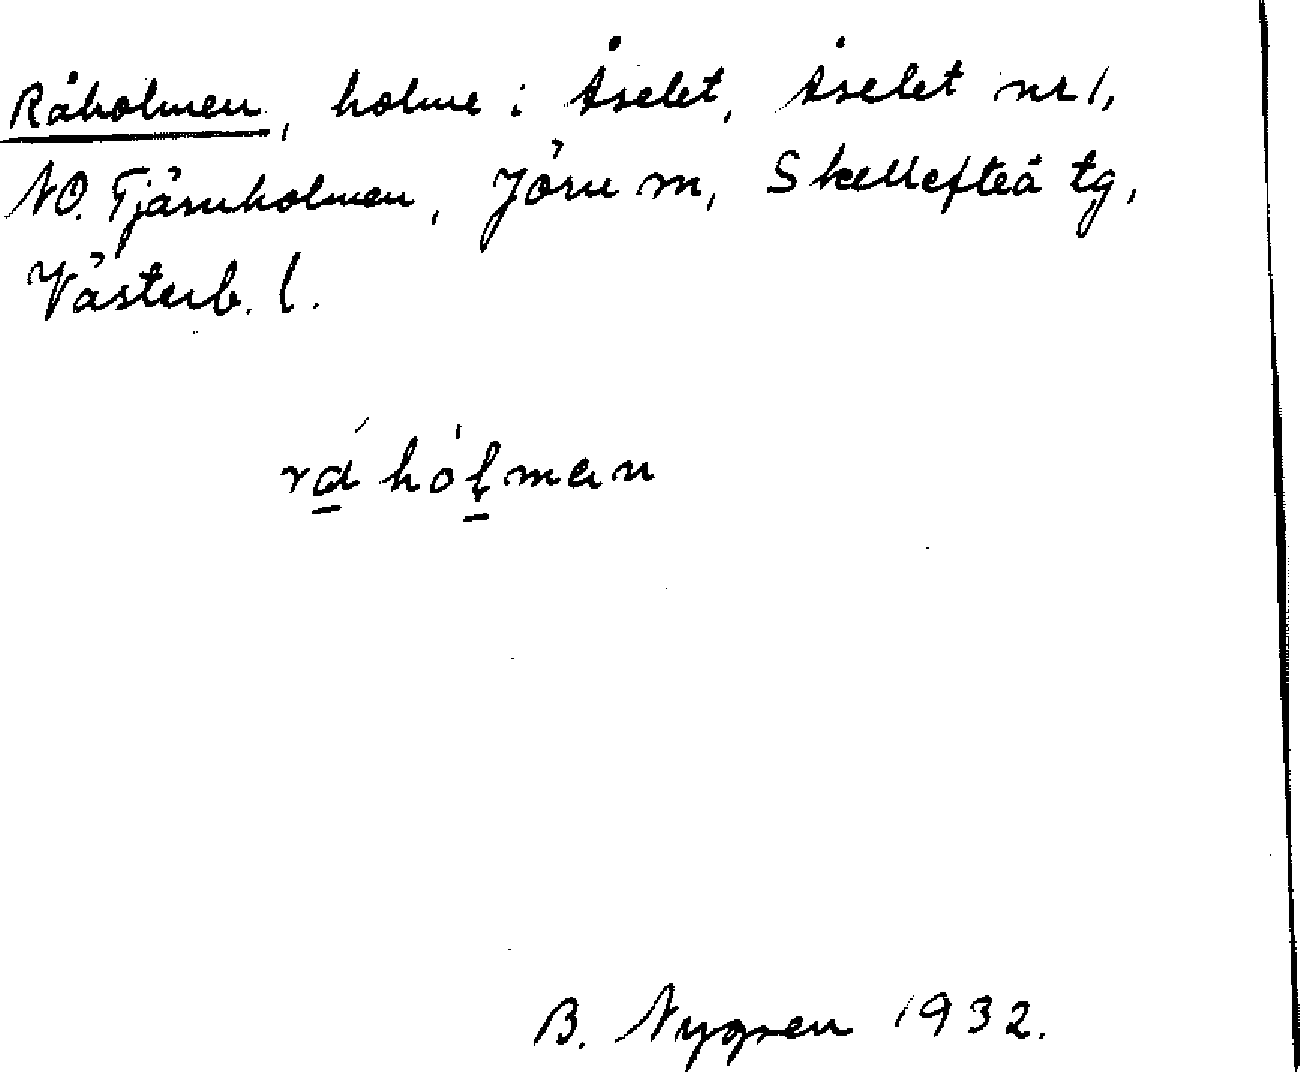 Råholmen, holme i Åselet, Åselet nr 1,
NO. Tjärnholmen, Jörn m, Skellefteå tg,
Västerb. l.
rá hólman
B. Nygren 1932.